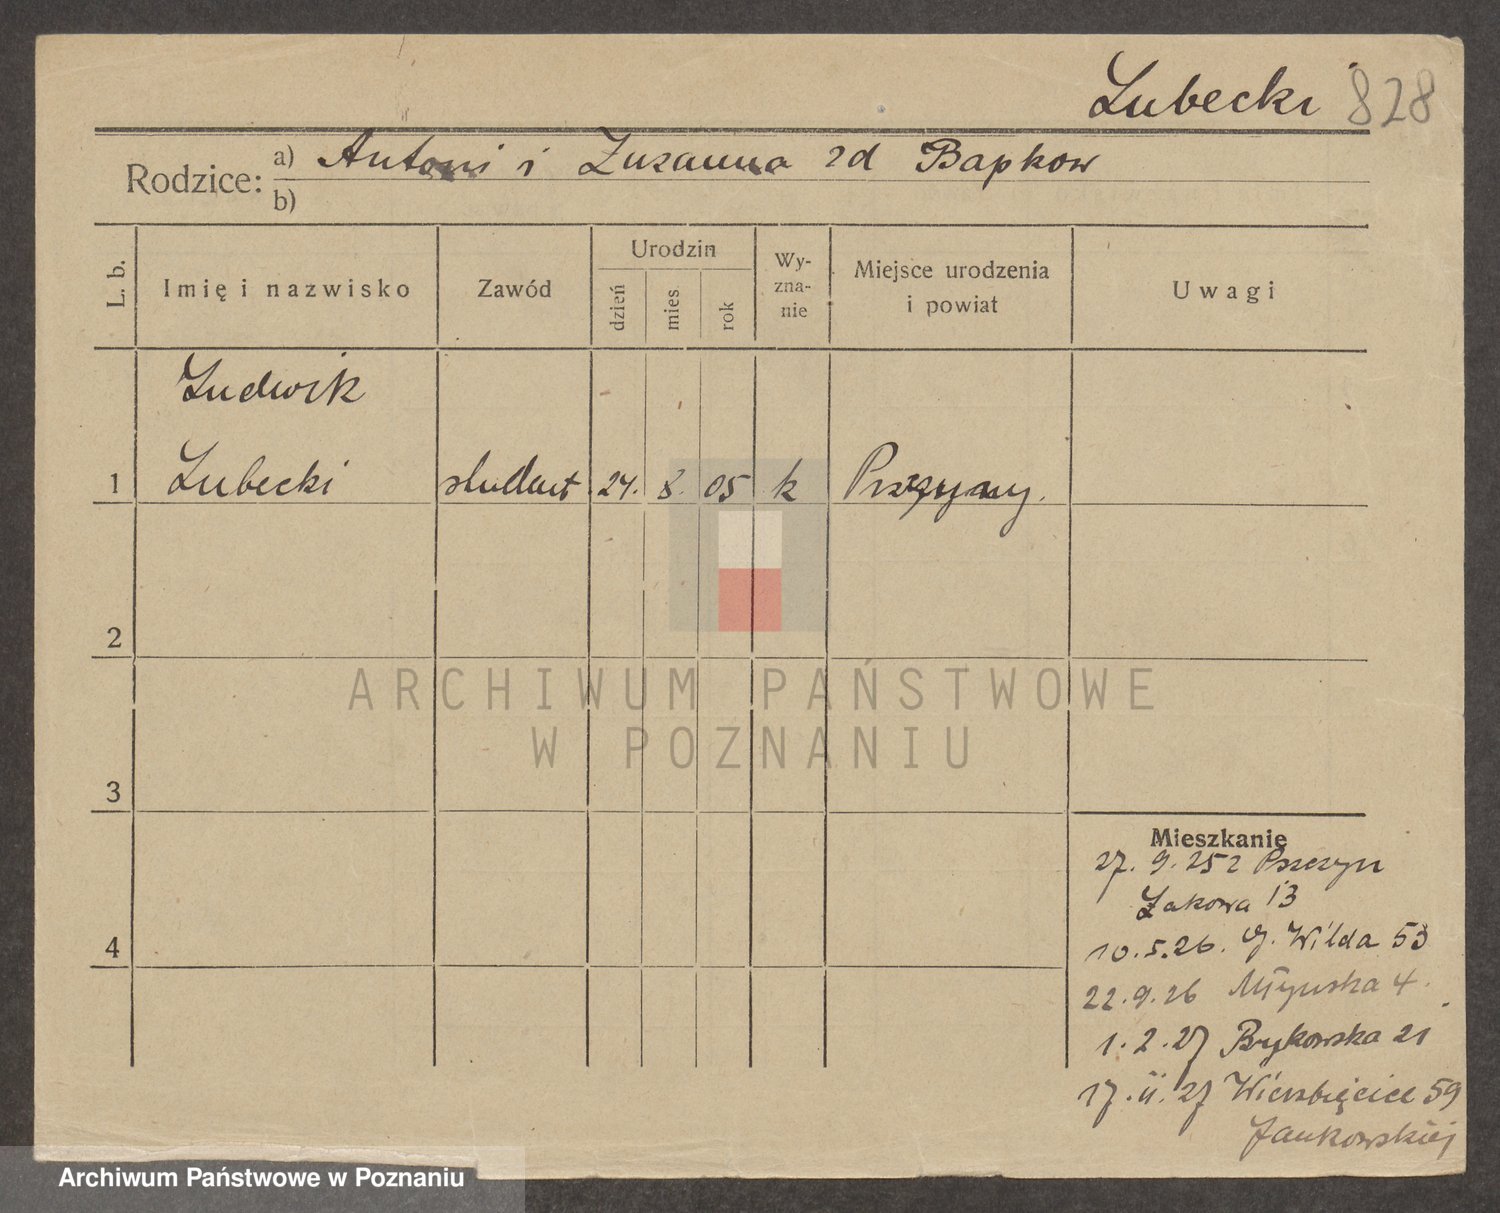 Lubecki 828
Rodzice: a) Antoni i Zuzanna zd Bapkow
b)
L. b. Imię i nazwisko Zawód Urodzin dzień mies rok Wy-zna-nie Miejsce urodzenia i powiat Uwagi
Ludwik
1 Lubecki student 24. 8. 05 k
2
3
4
ARCHIWUM PAŃSTWOWE
W POZNANIU
Mieszkanie
27. 9. 25 z Pszczyn
Łakowa 13
10.5.26. G. Wilda 53
22.9.26 Młyńska 4.
1.2.27 Bukowska 21
17.11.27 Wierzbięcice 59
Jankowskiej
Archiwum Państwowe w Poznaniu